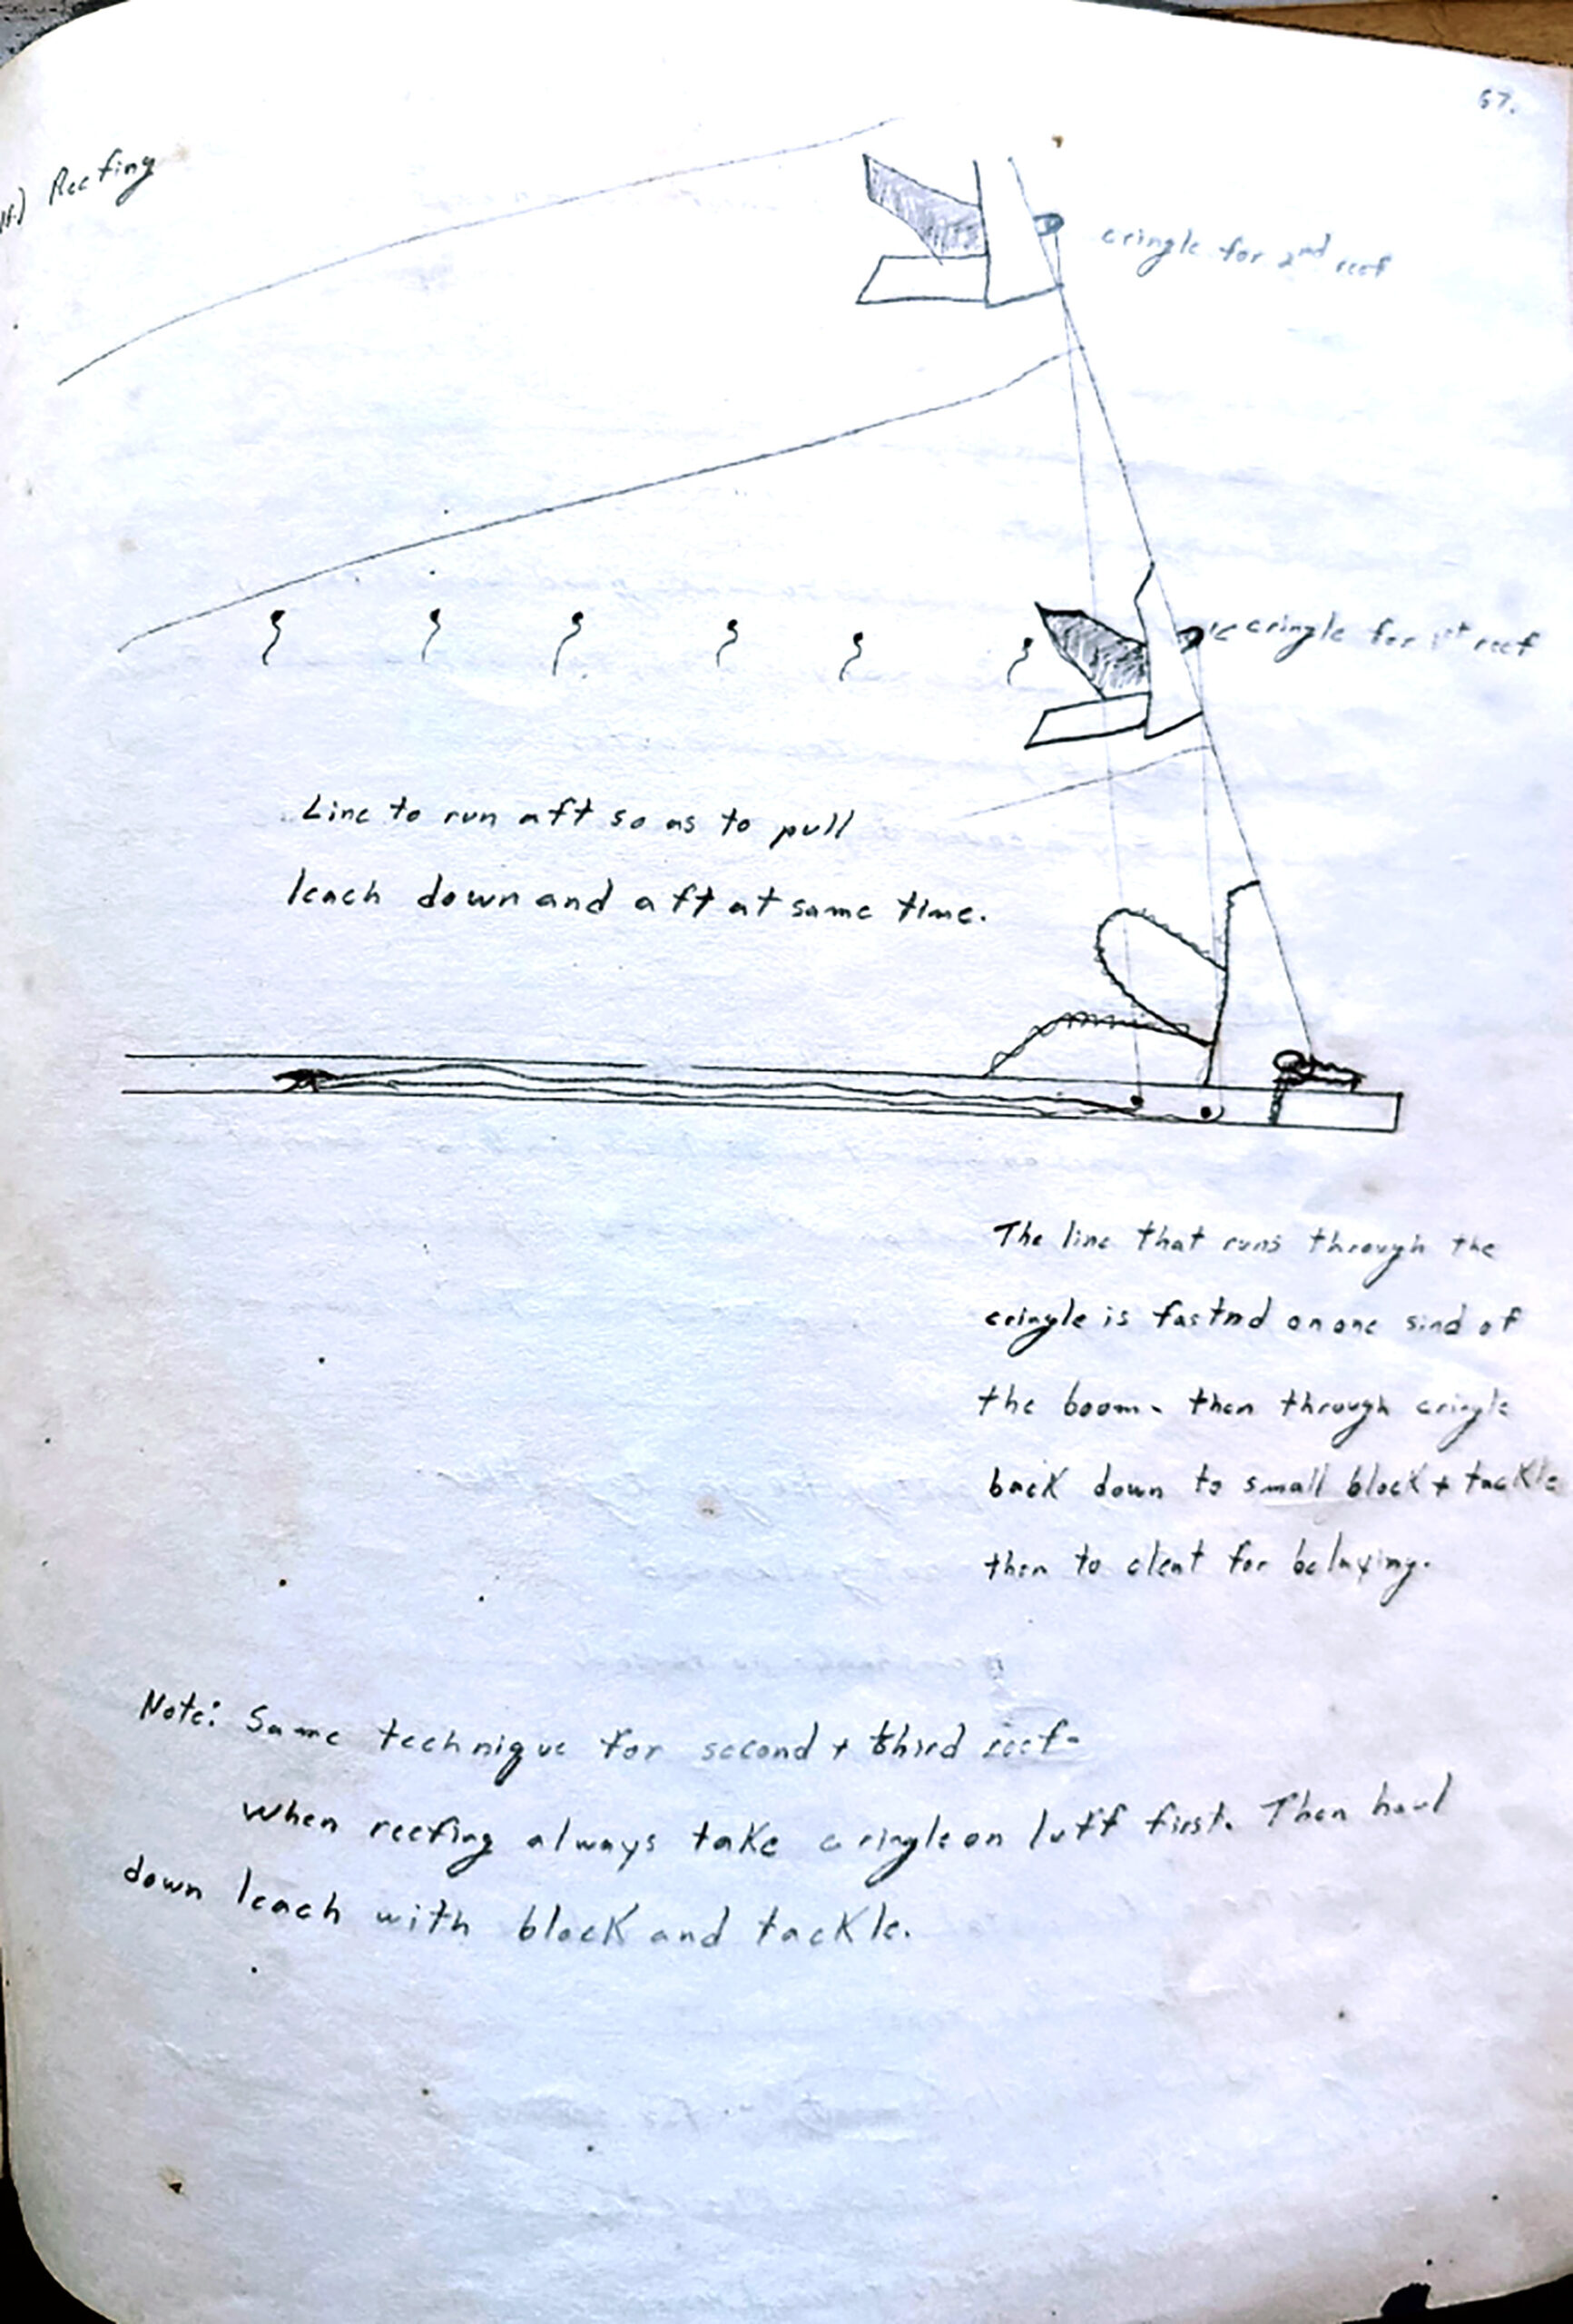 67.
Reefing
cringle for 2nd reef
cringle for 1st reef
Line to run aft so as to pull
leach down and aft at same time.
The line that runs through the
cringle is fastnd on one sind of
the boom. then through cringle
back down to small block + tackle
then to cleat for belaying.
Note: Same technique for second + third reef-
When reefing always take cringle on luff first. Then haul
down leach with block and tackle.